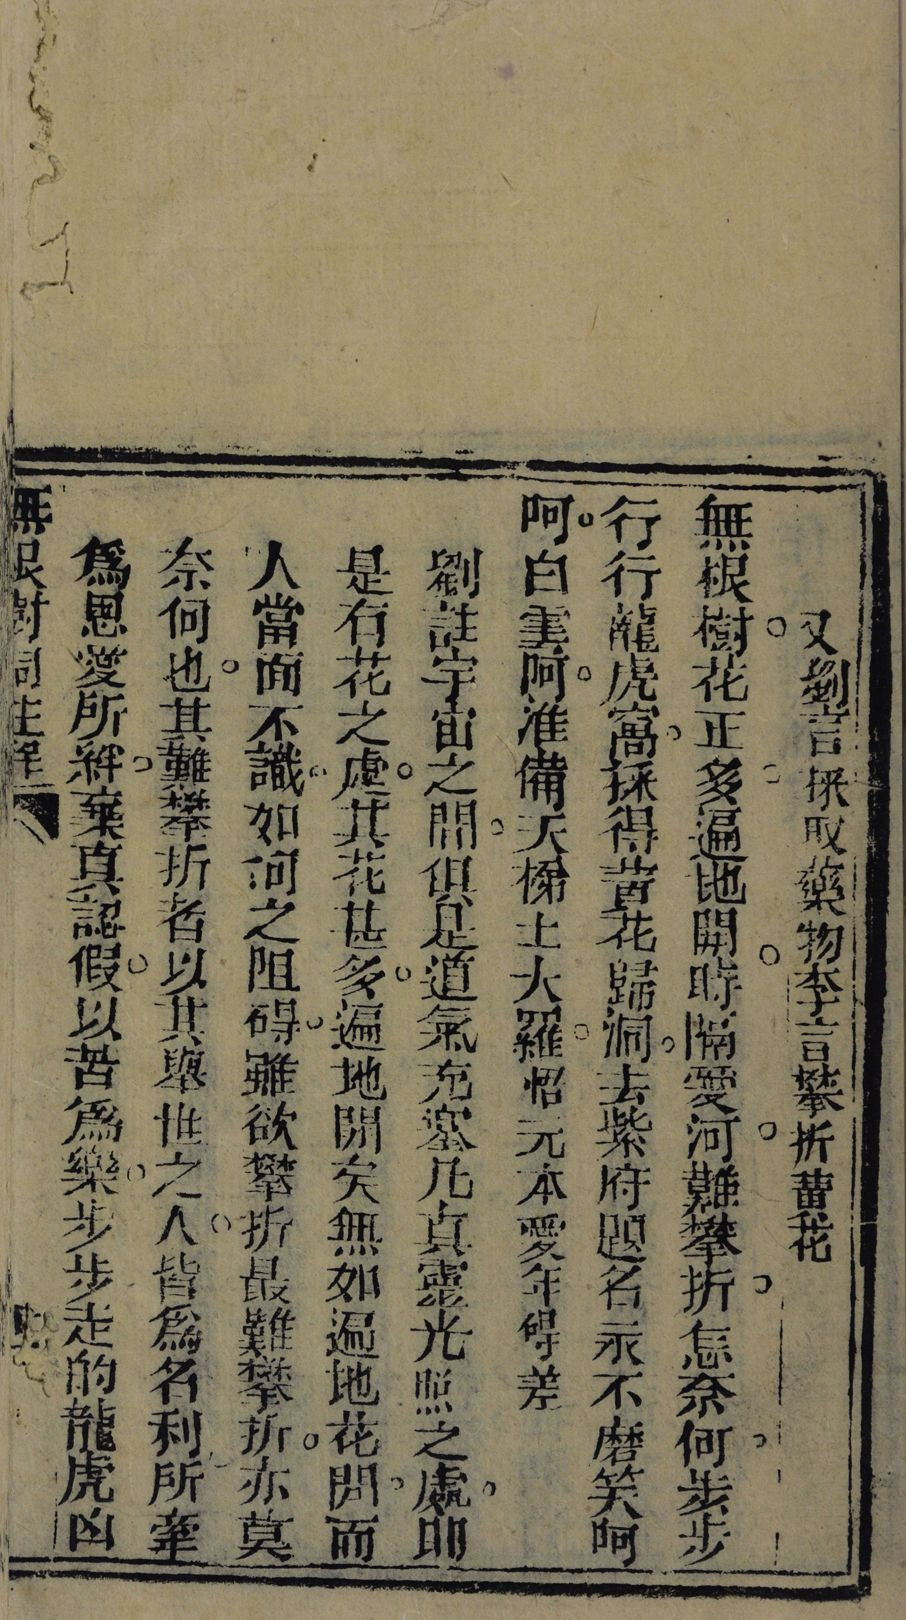 又劉言採取藥物李言攀折黃花
無根樹花正多遍地開時隔愛河難攀折怎奈何步步
行行龍虎窩採得黃花歸洞去紫府題名永不磨笑呵
呵白雲阿准備天梯上大羅怊元本愛年碍差
劉註宇宙之間俱是道氣充塞凡真靈光照之處即
是有花之處其花甚多遍地開矣無如遍地花開而
人當面不識如河之阻碍雖欲攀折最難攀折亦莫
奈何也其難攀折者以其舉世之人皆爲名利所牽
爲恩愛所絆棄真認假以苦爲樂步步走的龍虎凶
無根樹詞註解